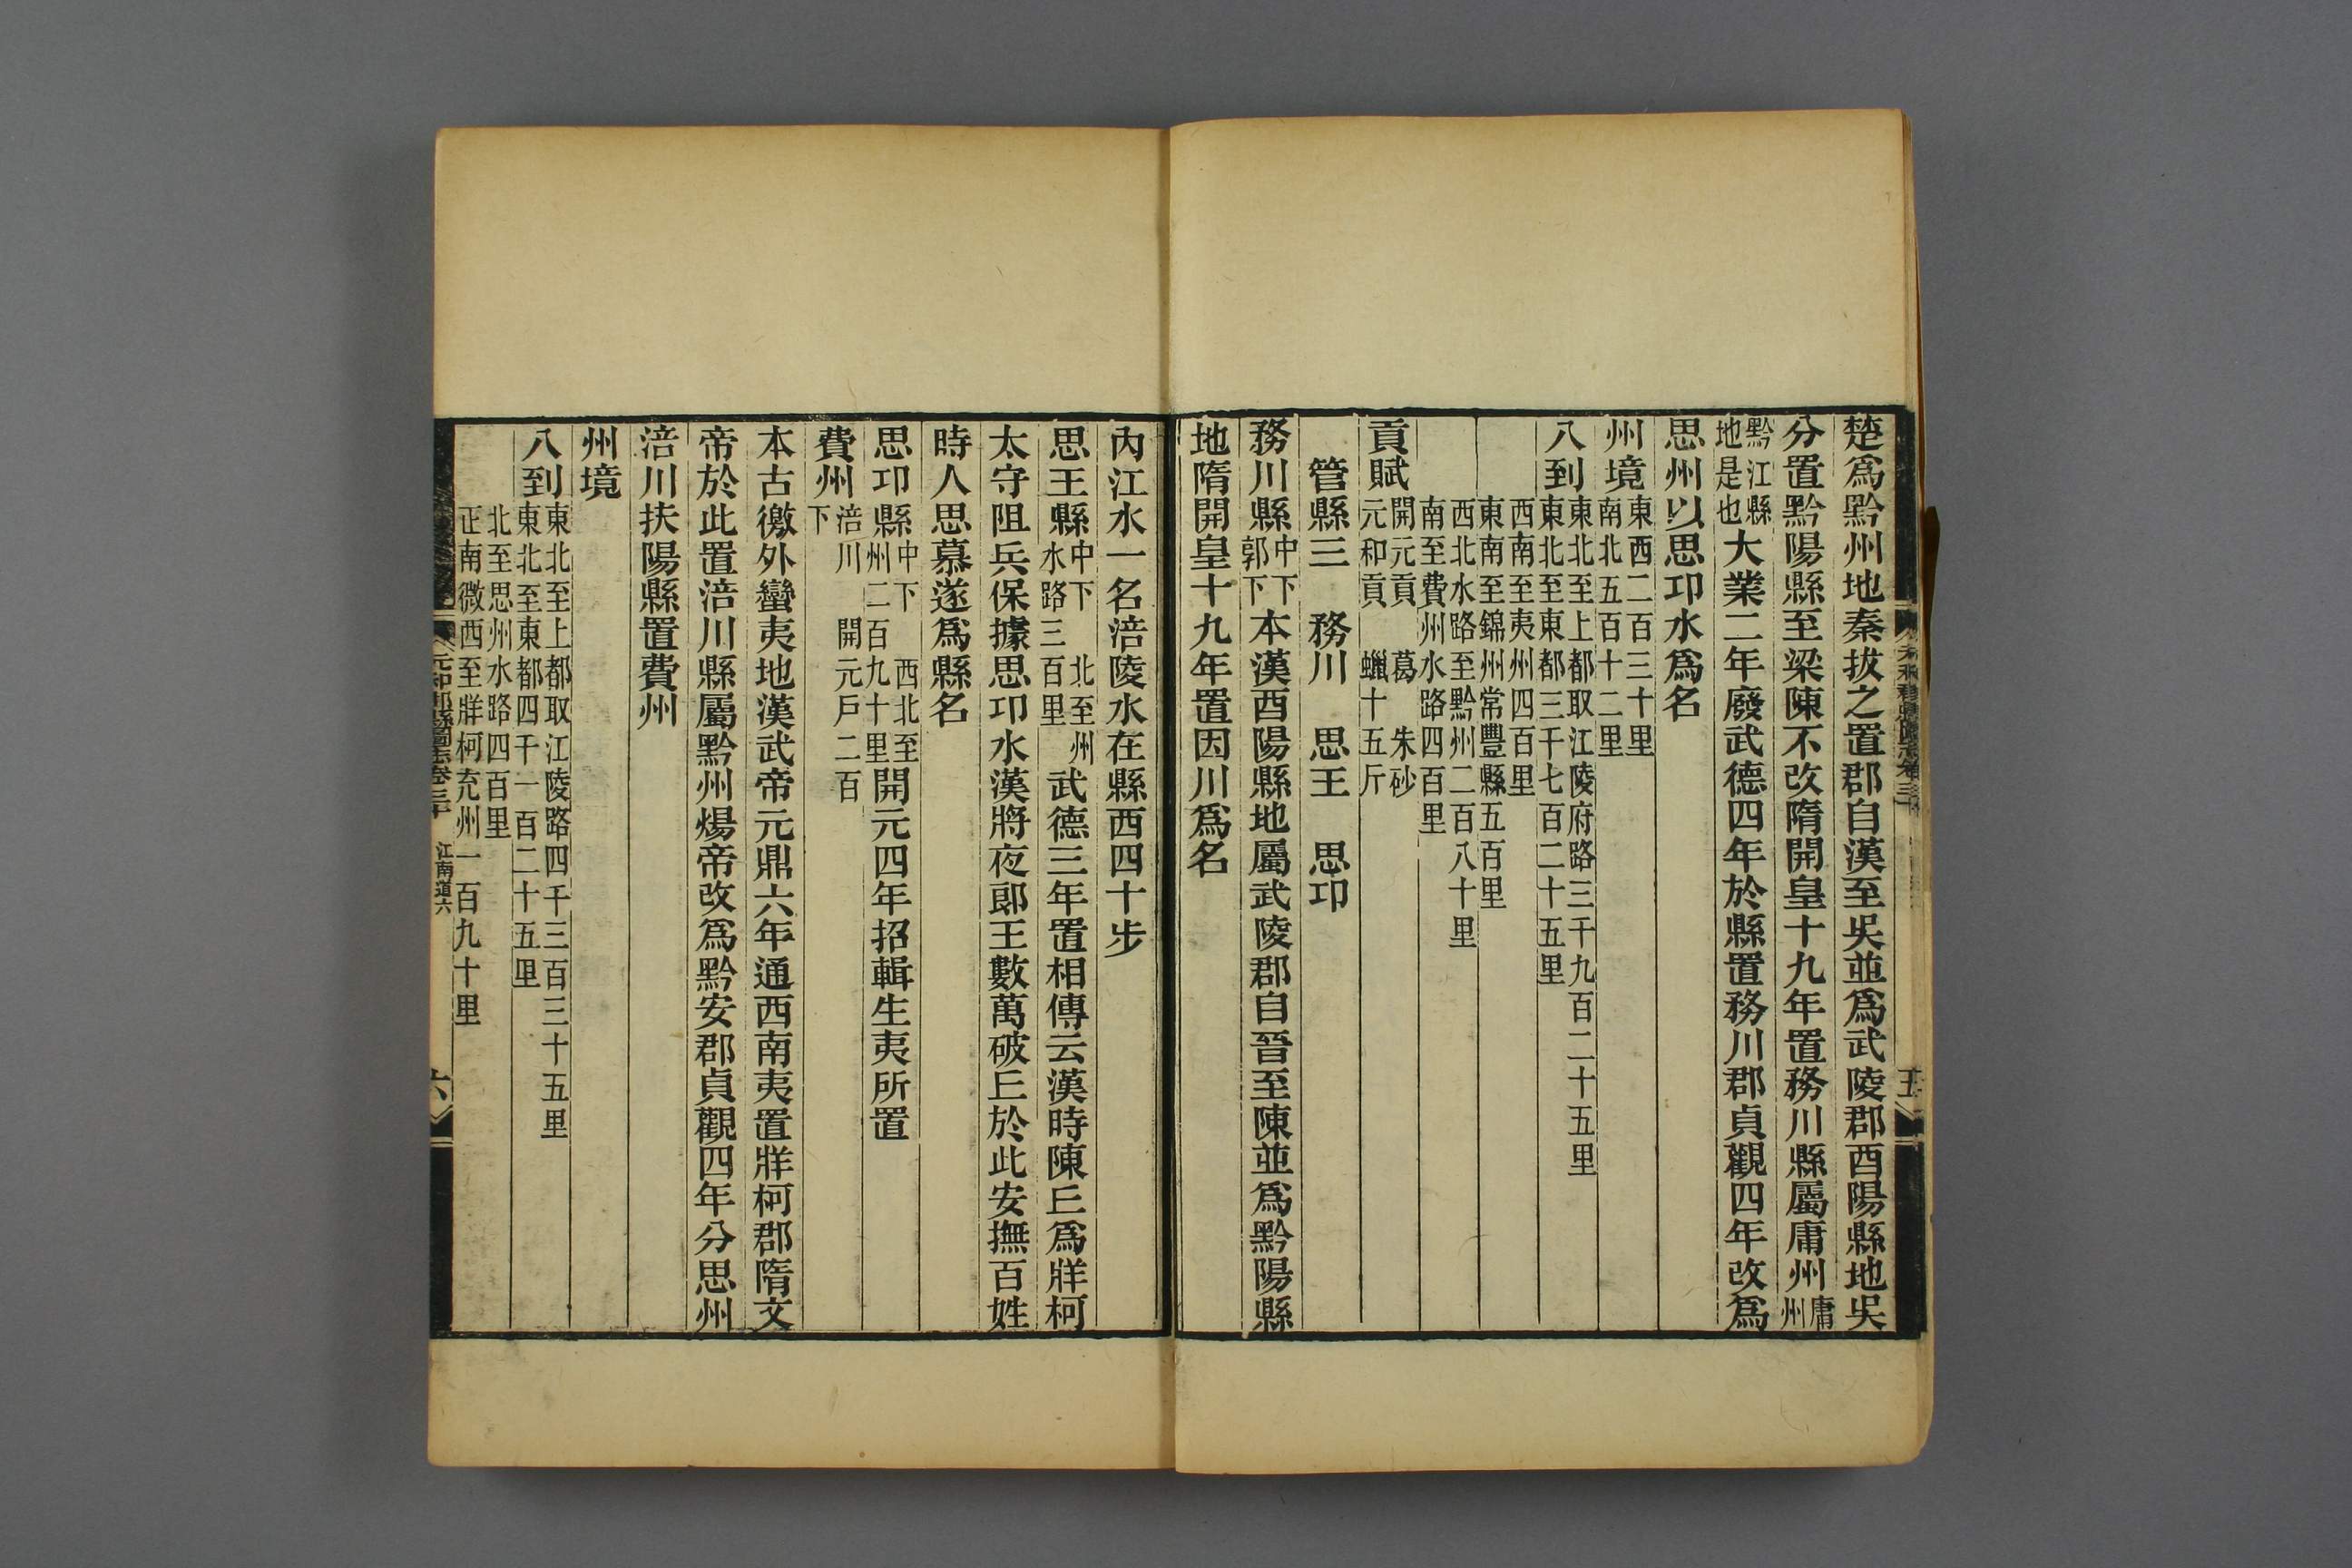 楚爲黔州地秦拔之置郡自漢至吳並爲武陵郡酉陽縣地吳
分置黔陽縣至梁陳不改隋開皇十九年置務川縣屬庸州庸州
黔江縣地是也大業二年廢武德四年於縣置務川郡貞觀四年改爲
思州以思卭水爲名
州境東西二百三十里南北五百十二里
八到東北至上都取江陵府路三千九百二十五里東北至東都三千七百二十五里
西南至夷州四百里東南至錦州常豐縣五百里
西北水路至黔州二百八十里南至費州水路四百里
貢賦開元貢 葛 朱砂元和貢 蠟十五斤
管縣三 務川 思王 思卭
務川縣中下郭下本漢酉陽縣地屬武陵郡自晉至陳並爲黔陽縣
地隋開皇十九年置因川爲名
內江水一名涪陵水在縣西四十步
思王縣中下 北至州水路三百里武德三年置相傳云漢時陳𠀉爲牂柯
太守阻兵保據思卭水漢將夜郎王數萬破𠀉於此安撫百姓
時人思慕遂爲縣名
思卭縣中下 西北至州二百九十里開元四年招輯生夷所置
費州涪川 開元戶二百下
本古徼外蠻夷地漢武帝元鼎六年通西南夷置牂柯郡隋文
帝於此置涪川縣屬黔州煬帝改爲黔安郡貞觀四年分思州
涪川扶陽縣置費州
州境
八到東北至上都取江陵路四千三百三十五里東北至東都四千一百二十五里
北至思州水路四百里正南微西至牂柯充州一百九十里
元和郡縣圖志卷三十 江南道六 六